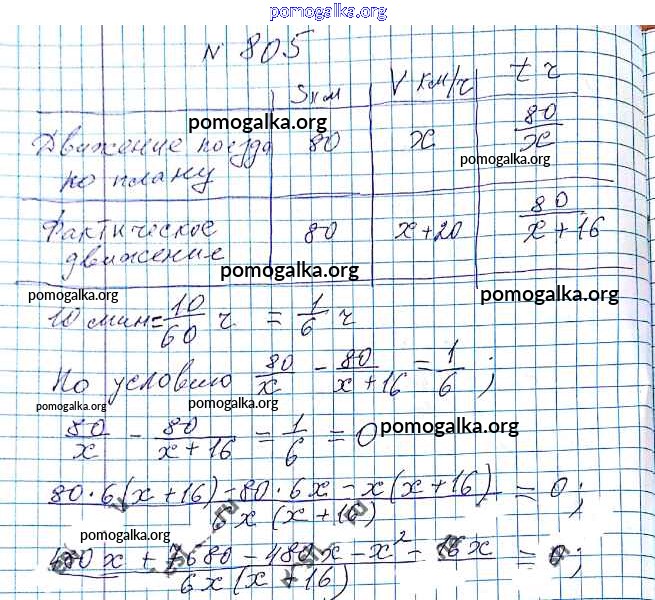 pomogalka.org
N 805
S км V км/ч t ч
pomogalka.org
Движение поезда по плану 80 x 80/x
pomogalka.org
Фактическое движение 80 x+20 80/(x+16)
pomogalka.org
pomogalka.org
pomogalka.org
10 мин = 10/60 ч = 1/6 ч
pomogalka.org
По условию 80/x - 80/(x+16) = 1/6 ;
pomogalka.org
pomogalka.org
80/x - 80/(x+16) = 1/6 = 0
pomogalka.org
(80·6(x+16) - 80·6x - x(x+16))/(6x(x+16)) = 0;
pomogalka.org
(480x + 7680 - 480x - x² - 16x)/(6x(x+16)) = 0;